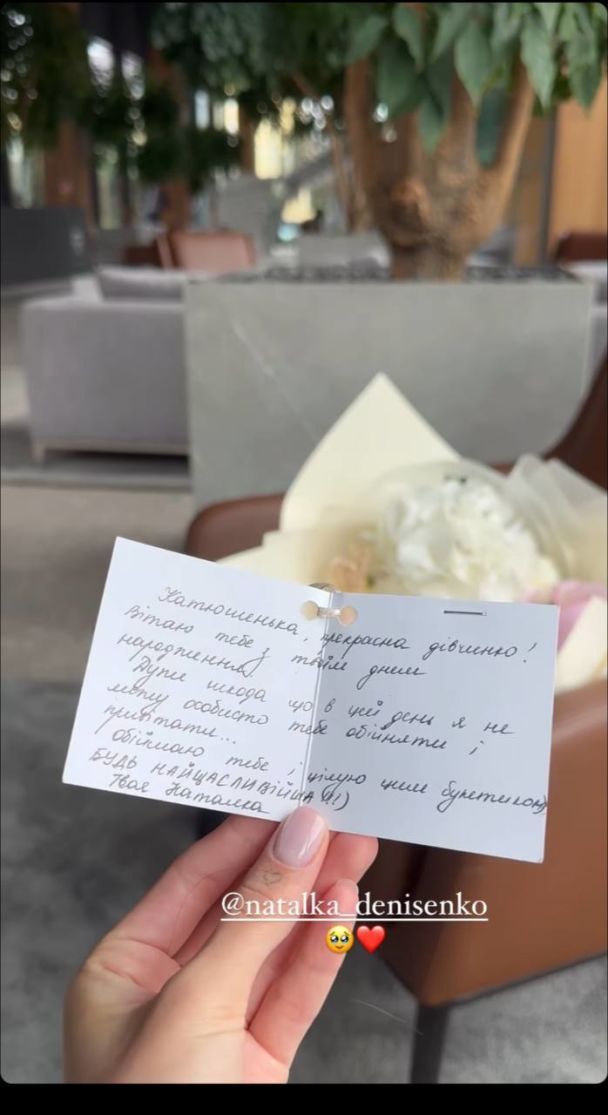 Катюшенька, прекрасна дівчинко!
Вітаю тебе з твоїм днем
народження)
Дуже шкода що в цей день я не
можу особисто тебе обійняти і
привітати...
обіймаю тебе і цілую цим букетиком)
БУДЬ НАЙЩАСЛИВІЙША!!!)
Твоя Наталка
@natalka_denisenko
🥹❤️